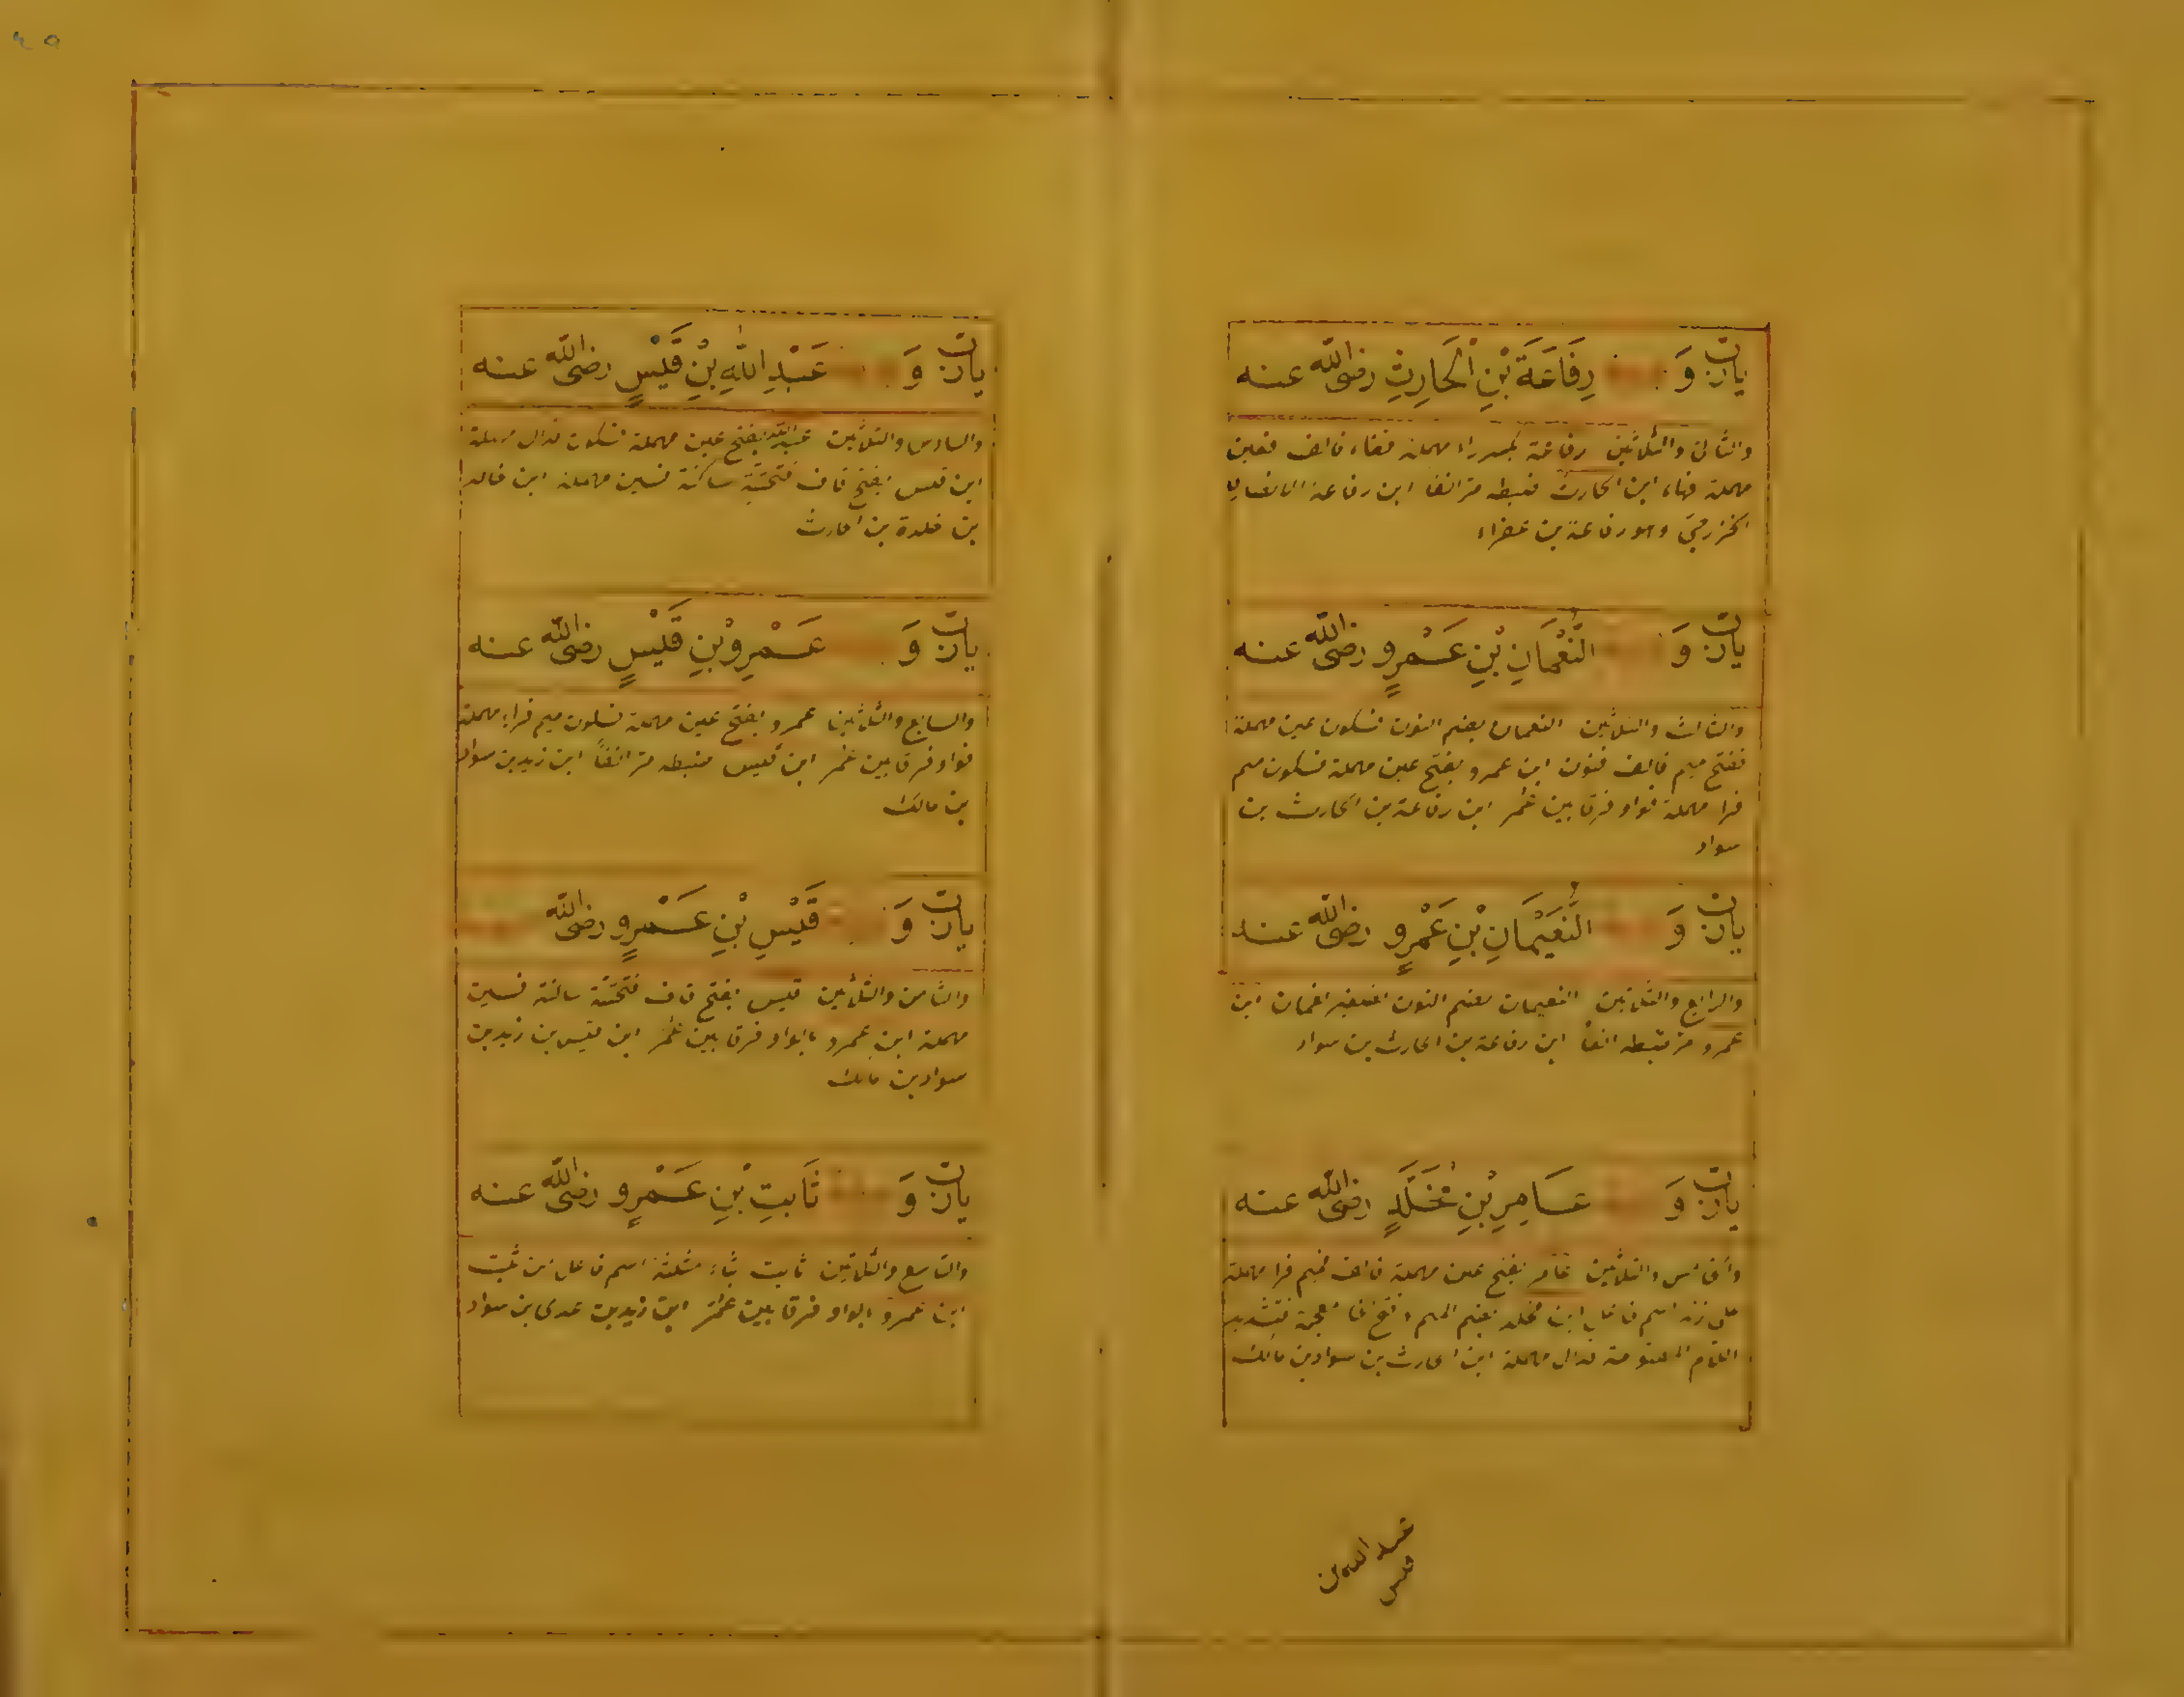 يارب وَ رِفَاعَةَ بْنِ الْحَارِثِ رضى الله عنه
والثانى والثلاثين رفاعة بكسر راء مهملة ففاء فالف فعين
مهملة فهاء ابن الحارث ضبطه مر انفا ابن رفاعة الانصارى
الخزرجى وهو رفاعة بن عفراء
يارب وَ النُّعْمَانِ بْنِ عَمْرٍو رضى الله عنه
والثالث والثلاثين النعمان بضم النون فسكون عين مهملة
ففتح ميم فالف فنون ابن عمرو بفتح عين مهملة فسكون ميم
فرا مهملة فواو فرقا بين عمر ابن رفاعة بن الحارث بن
سواد
يارب وَ النُّعَيْمَانِ بْنِ عَمْرٍو رضى الله عنه
والرابع والثلاثين النعيمان بضم النون تصغير نعمان ابن
عمرو مر ضبطه انفا ابن رفاعة بن الحارث بن سواد
يارب وَ عَامِرِ بْنِ مُخَلَّدٍ رضى الله عنه
والخامس والثلاثين عامر بفتح عين مهملة فالف فميم فرا مهملة
على زنة اسم فاعل ابن مخلد بضم الميم وفتح خا معجمة فتشديد
اللام المفتوحة فدال مهملة ابن الحارث بن سواد بن مالك
عبد الله بن
قيس
يارب وَ عَبْدِ اللهِ بْنِ قَيْسٍ رضى الله عنه
والسادس والثلاثين عبد الله بفتح عين مهملة فسكون فدال مهملة
ابن قيس بفتح قاف فتحتية ساكنة فسين مهملة ابن خالد
بن خلدة بن الحارث
يارب وَ عَمْرِو بْنِ قَيْسٍ رضى الله عنه
والسابع والثلاثين عمرو بفتح عين مهملة فسكون ميم فراء مهملة
فواو فرقا بين عمر ابن قيس ضبطه مر انفًا ابن زيد بن سواد
بن مالك
يارب وَ قَيْسِ بْنِ عَمْرٍو رضى الله
والثامن والثلاثين قيس بفتح قاف فتحتية ساكنة فسين
مهملة ابن عمرو بالواو فرقا بين عمر ابن قيس بن زيد بن
سواد بن مالك
يارب وَ ثَابِتِ بْنِ عَمْرٍو رضى الله عنه
والتاسع والثلاثين ثابت بثاء مثلثة اسم فاعل من ثبت
ابن عمرو بالواو فرقا بين عمر ابن زيد بن عدى بن سواد